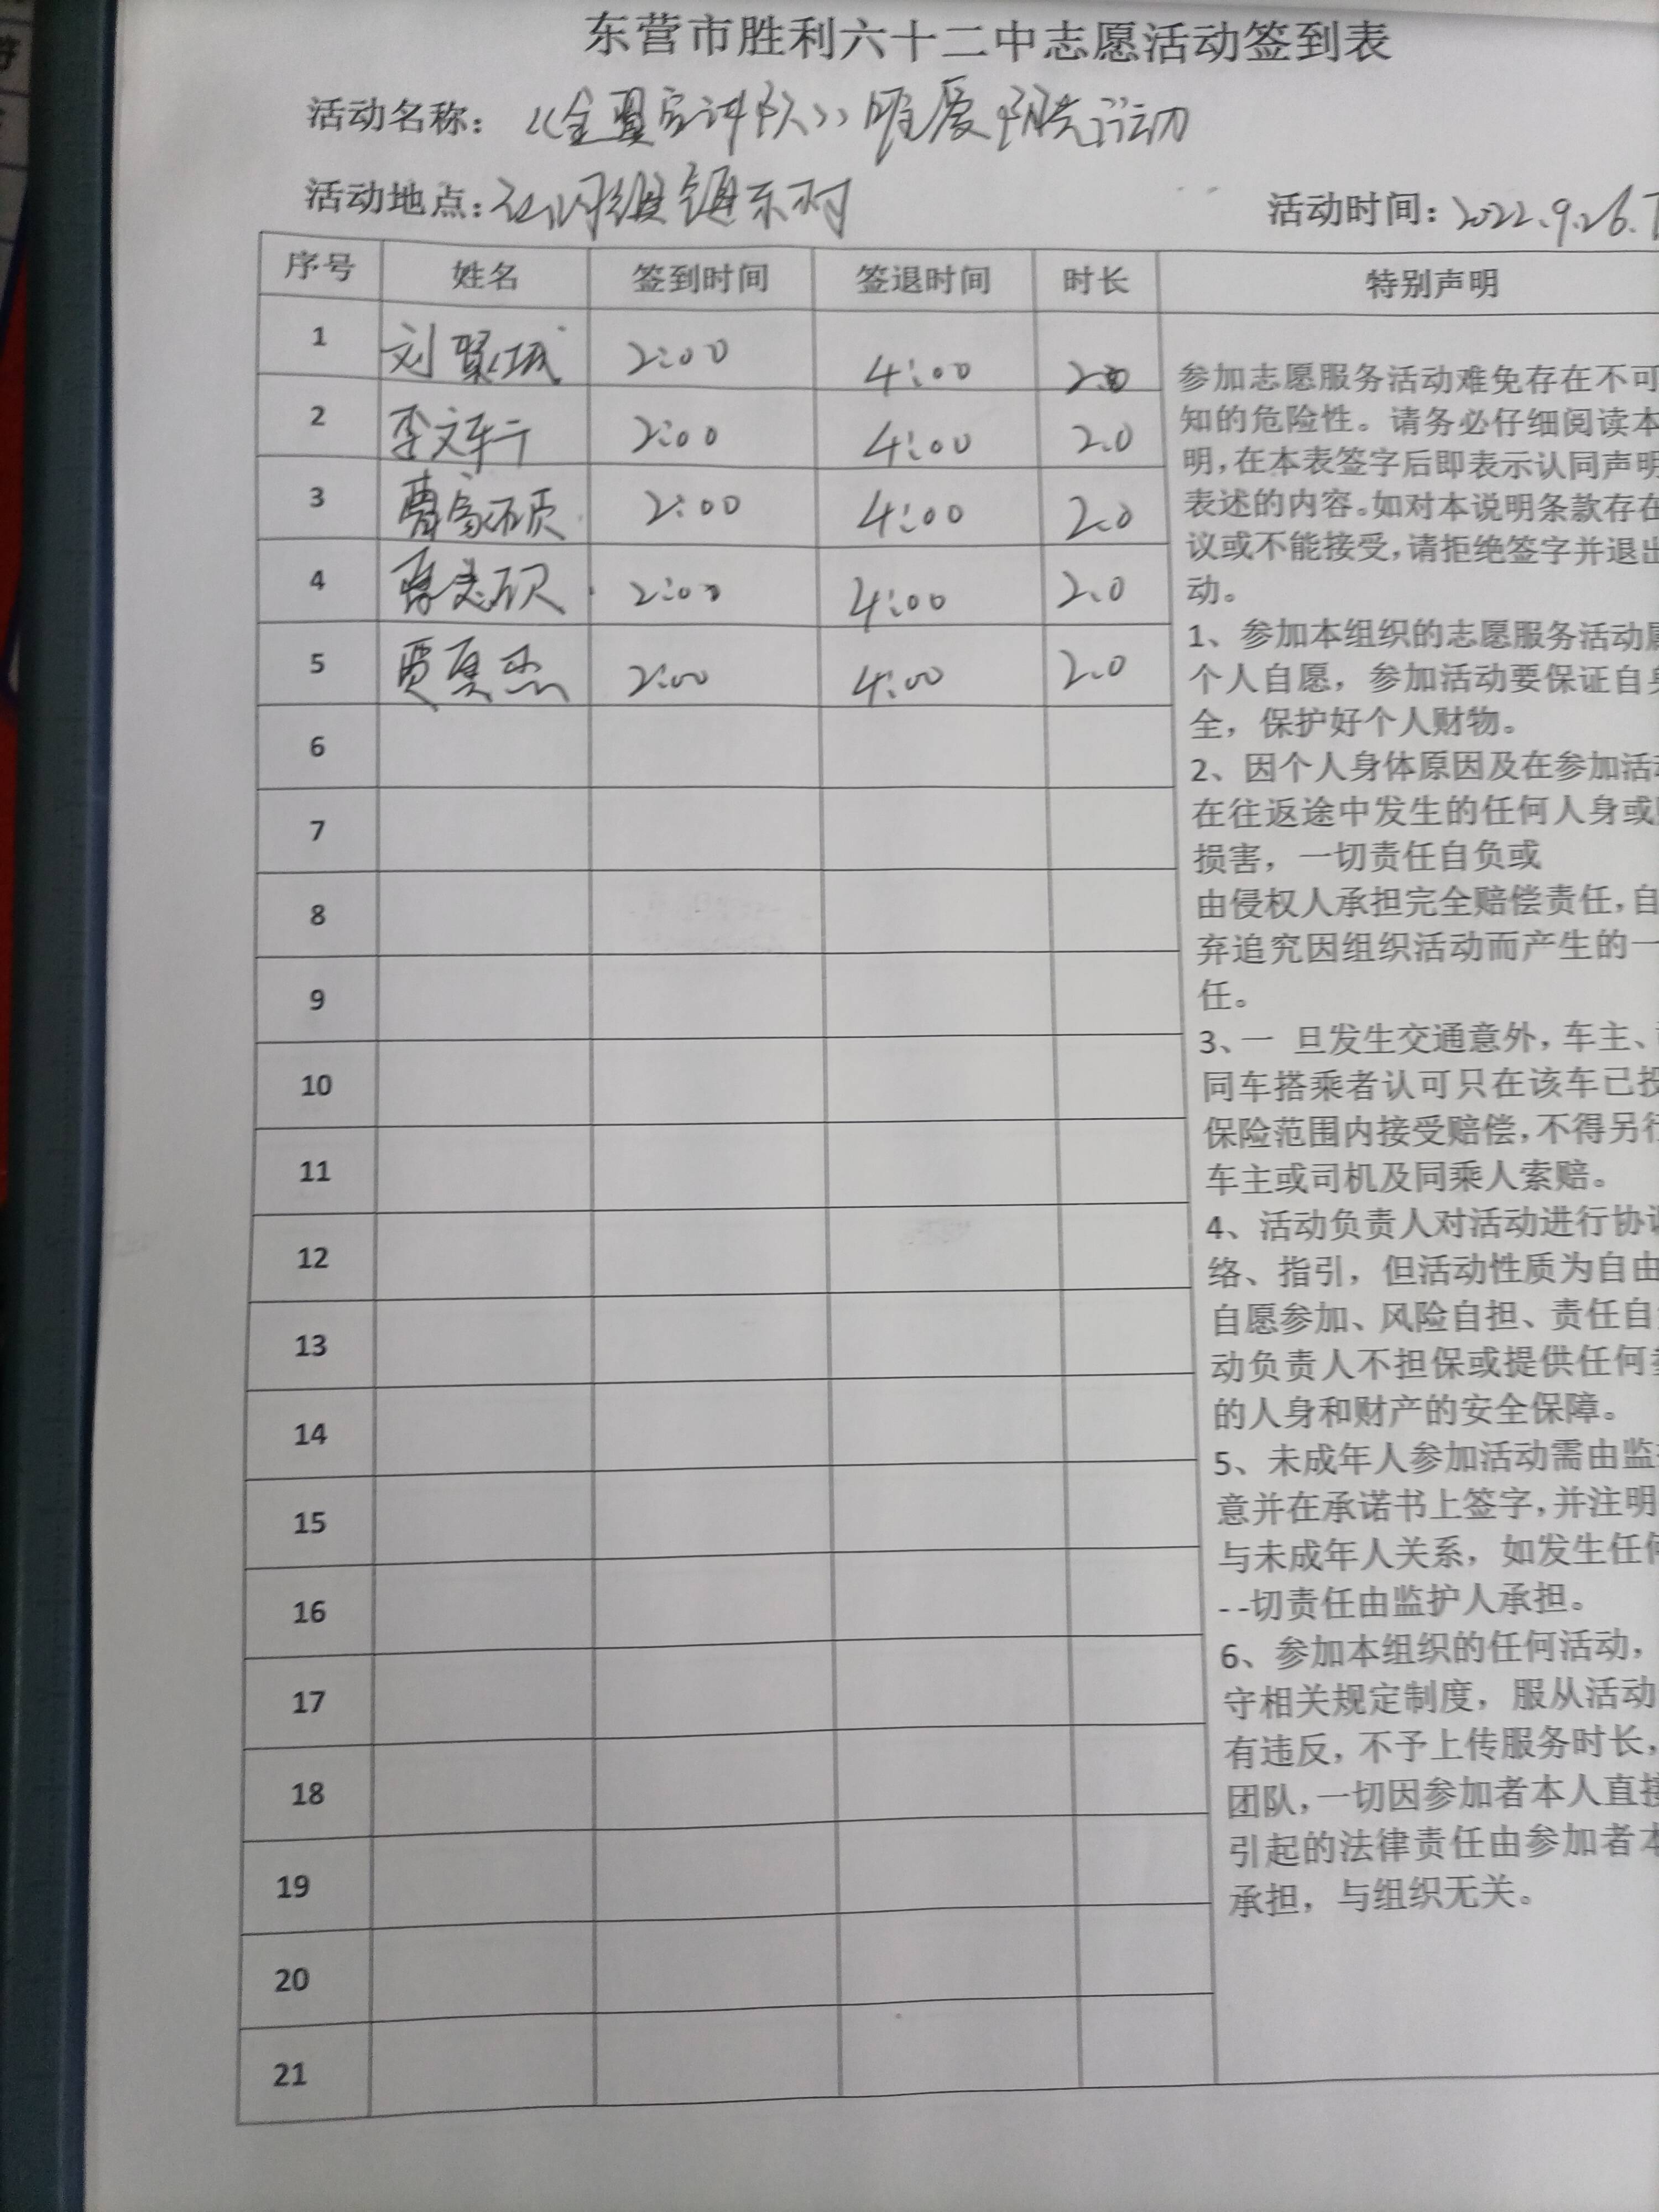 东营市胜利六十二中志愿活动签到表
活动名称：《金翼宣讲队》 爱 活动
活动地点： 镇东村
活动时间：2022.9.26.
序号 姓名 签到时间 签退时间 时长 特别声明
1 刘贤 2:00 4:00 2.0
2 李文轩 2:00 4:00 2.0
3 曹家硕 2:00 4:00 2.0
4 2:00 4:00 2.0
5 贾 杰 2:00 4:00 2.0
6
7
8
9
10
11
12
13
14
15
16
17
18
19
20
21
参加志愿服务活动难免存在不可
知的危险性。请务必仔细阅读本
明，在本表签字后即表示认同声明
表述的内容。如对本说明条款存在
议或不能接受，请拒绝签字并退出
动。
1、参加本组织的志愿服务活动
个人自愿，参加活动要保证自身
全，保护好个人财物。
2、因个人身体原因及在参加活动
在往返途中发生的任何人身或
损害，一切责任自负或
由侵权人承担完全赔偿责任，自
弃追究因组织活动而产生的一
任。
3、一 旦发生交通意外，车主、
同车搭乘者认可只在该车已投
保险范围内接受赔偿，不得另行
车主或司机及同乘人索赔。
4、活动负责人对活动进行协调
络、指引，但活动性质为自由
自愿参加、风险自担、责任自
动负责人不担保或提供任何参
的人身和财产的安全保障。
5、未成年人参加活动需由监
意并在承诺书上签字，并注明
与未成年人关系，如发生任何
--切责任由监护人承担。
6、参加本组织的任何活动，
守相关规定制度，服从活动
有违反，不予上传服务时长，
团队，一切因参加者本人直接
引起的法律责任由参加者本
承担，与组织无关。